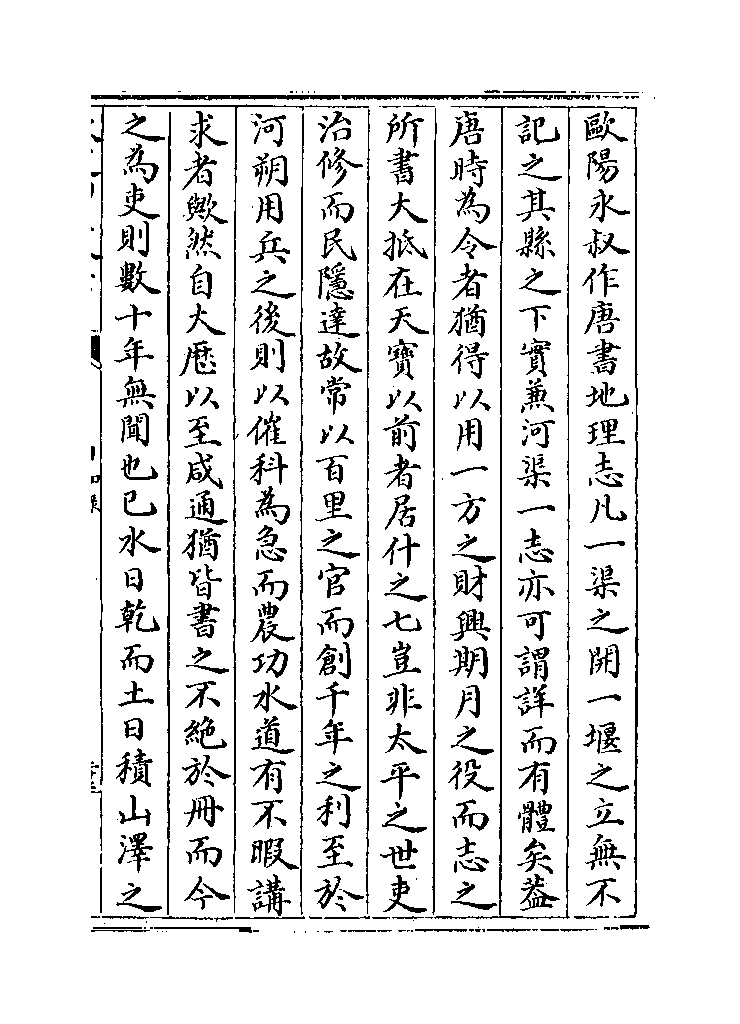 歐陽永叔作唐書地理志凡一渠之開一堰之立無不
記之其縣之下實蒹河渠一志亦可謂詳而有體矣葢
唐時為令者猶得以用一方之財興期月之役而志之
所書大抵在天寶以前者居什之七豈非太平之世吏
治修而民隱達故常以百里之官而創千年之利至於
河朔用兵之後則以催科為急而農功水道有不暇講
求者歟然自大厯以至咸通猶皆書之不絶於冊而今
之為吏則數十年無聞也已水日乾而土日積山澤之